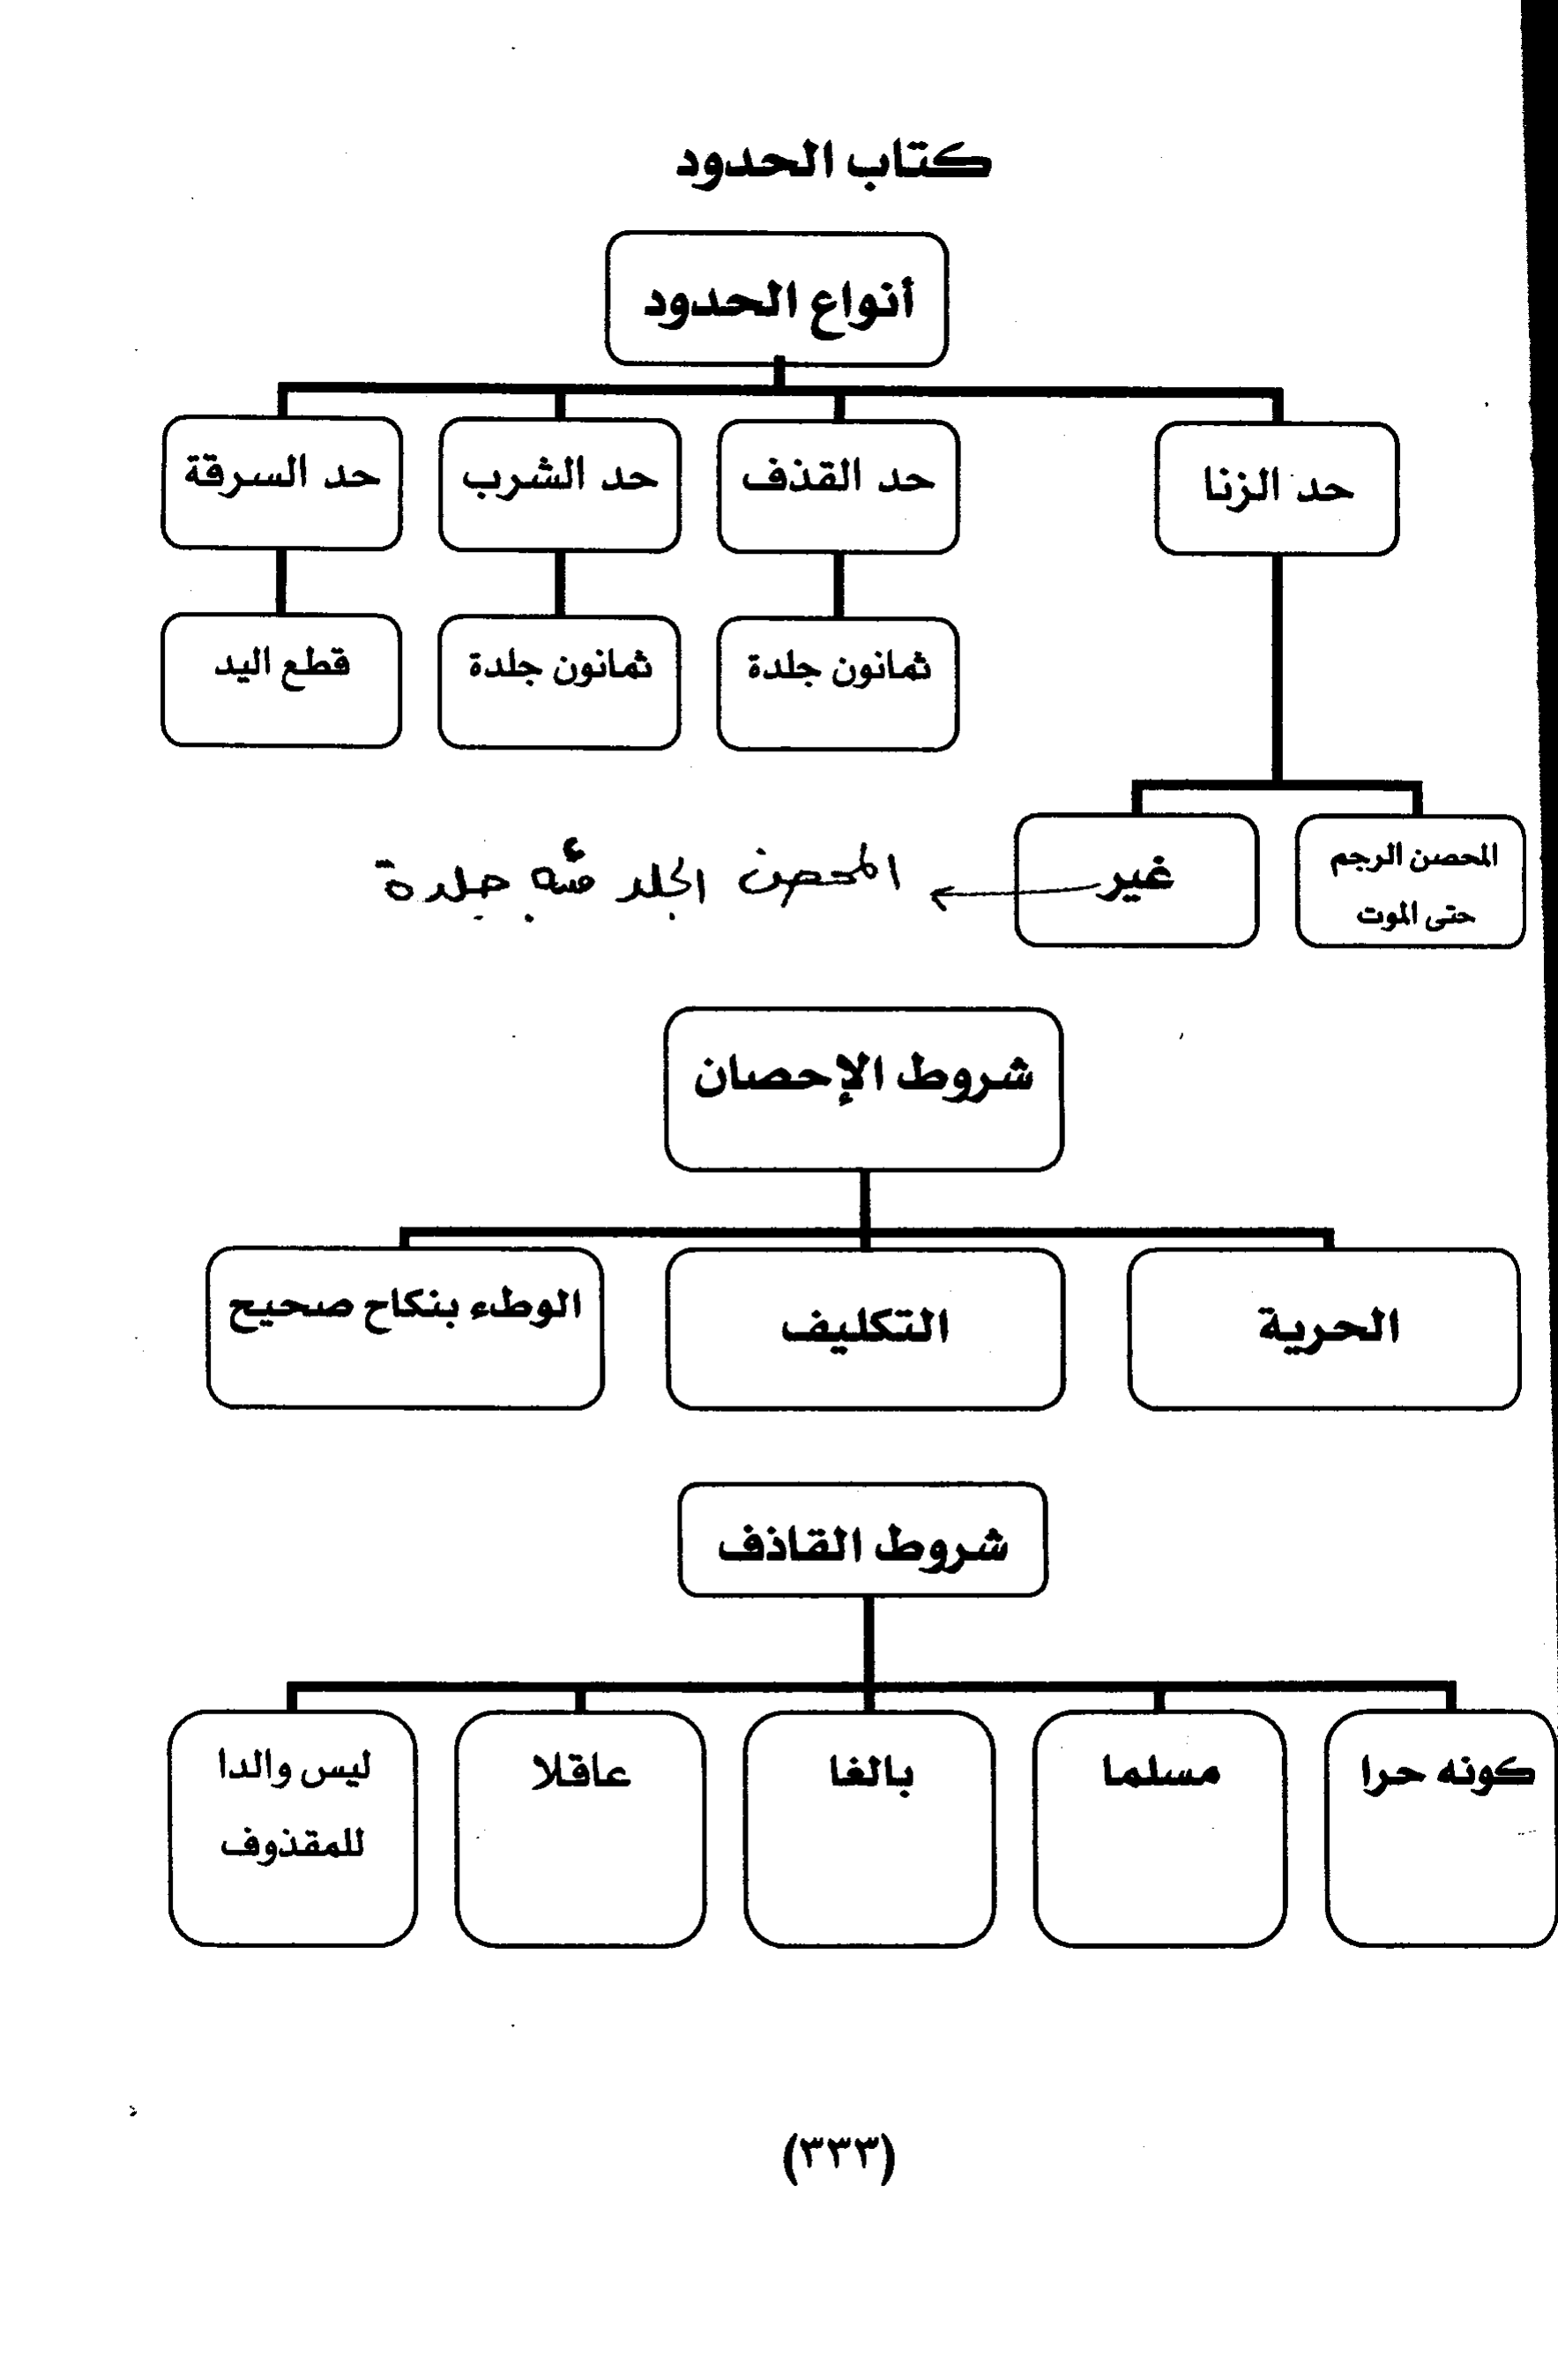 كتاب الحدود
أنواع الحدود
حد الزنا
حد القذف
حد الشرب
حد السرقة
ثمانون جلدة
ثمانون جلدة
قطع اليد
المحصن الرجم
حتى الموت
غير
المحصن الجلد مئه جلدة
شروط الإحصان
الحرية
التكليف
الوطء بنكاح صحيح
شروط القاذف
كونه حرا
مسلما
بالغا
عاقلا
ليس والدا
للمقذوف
(٣٣٣)